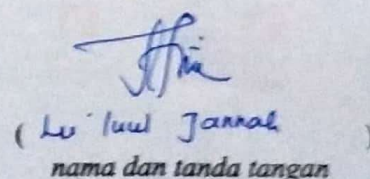 ( Lu'luul Jannah )
nama dan tanda tangan